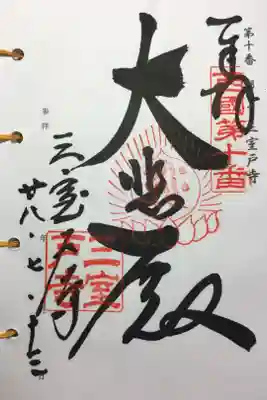 第十番 三室戸寺
奉拝
西國第十番
大悲殿
三室戸寺
三室戸寺
廿八・七・十三